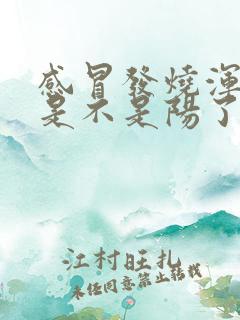 感冒發燒渾
是不是陽了
江村旺扎
未经同意禁止转载